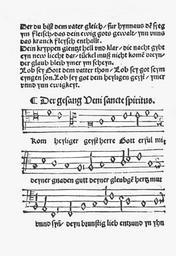 Der du bist dem vater gleich / für hynnauß dē syeg
ym fleisch / das dein ewig gots gewalt / ynn vnns
das kranck fleysch enthallt.
Dein kryppen glentzt hell vnd klar / die nacht gybt
eyn new liecht dar / tückel muß nicht komē dreyn /
der glaub bleib ymer ym scheyn.
Lob sey Got dem vater thon / Lob sey got seym
eyngen son / Lob sey got dem heyligen geyst / ymer
vnnd ynn ewigkeyt.
¶ Der gesang Veni sancte spiritus.
Kom heyliger geyst herre Gott erfül mit
deyner gnaden gutt deyner gleubgē hertz mut
vnnd syn / deyn brunstig lieb entzund yn yhn